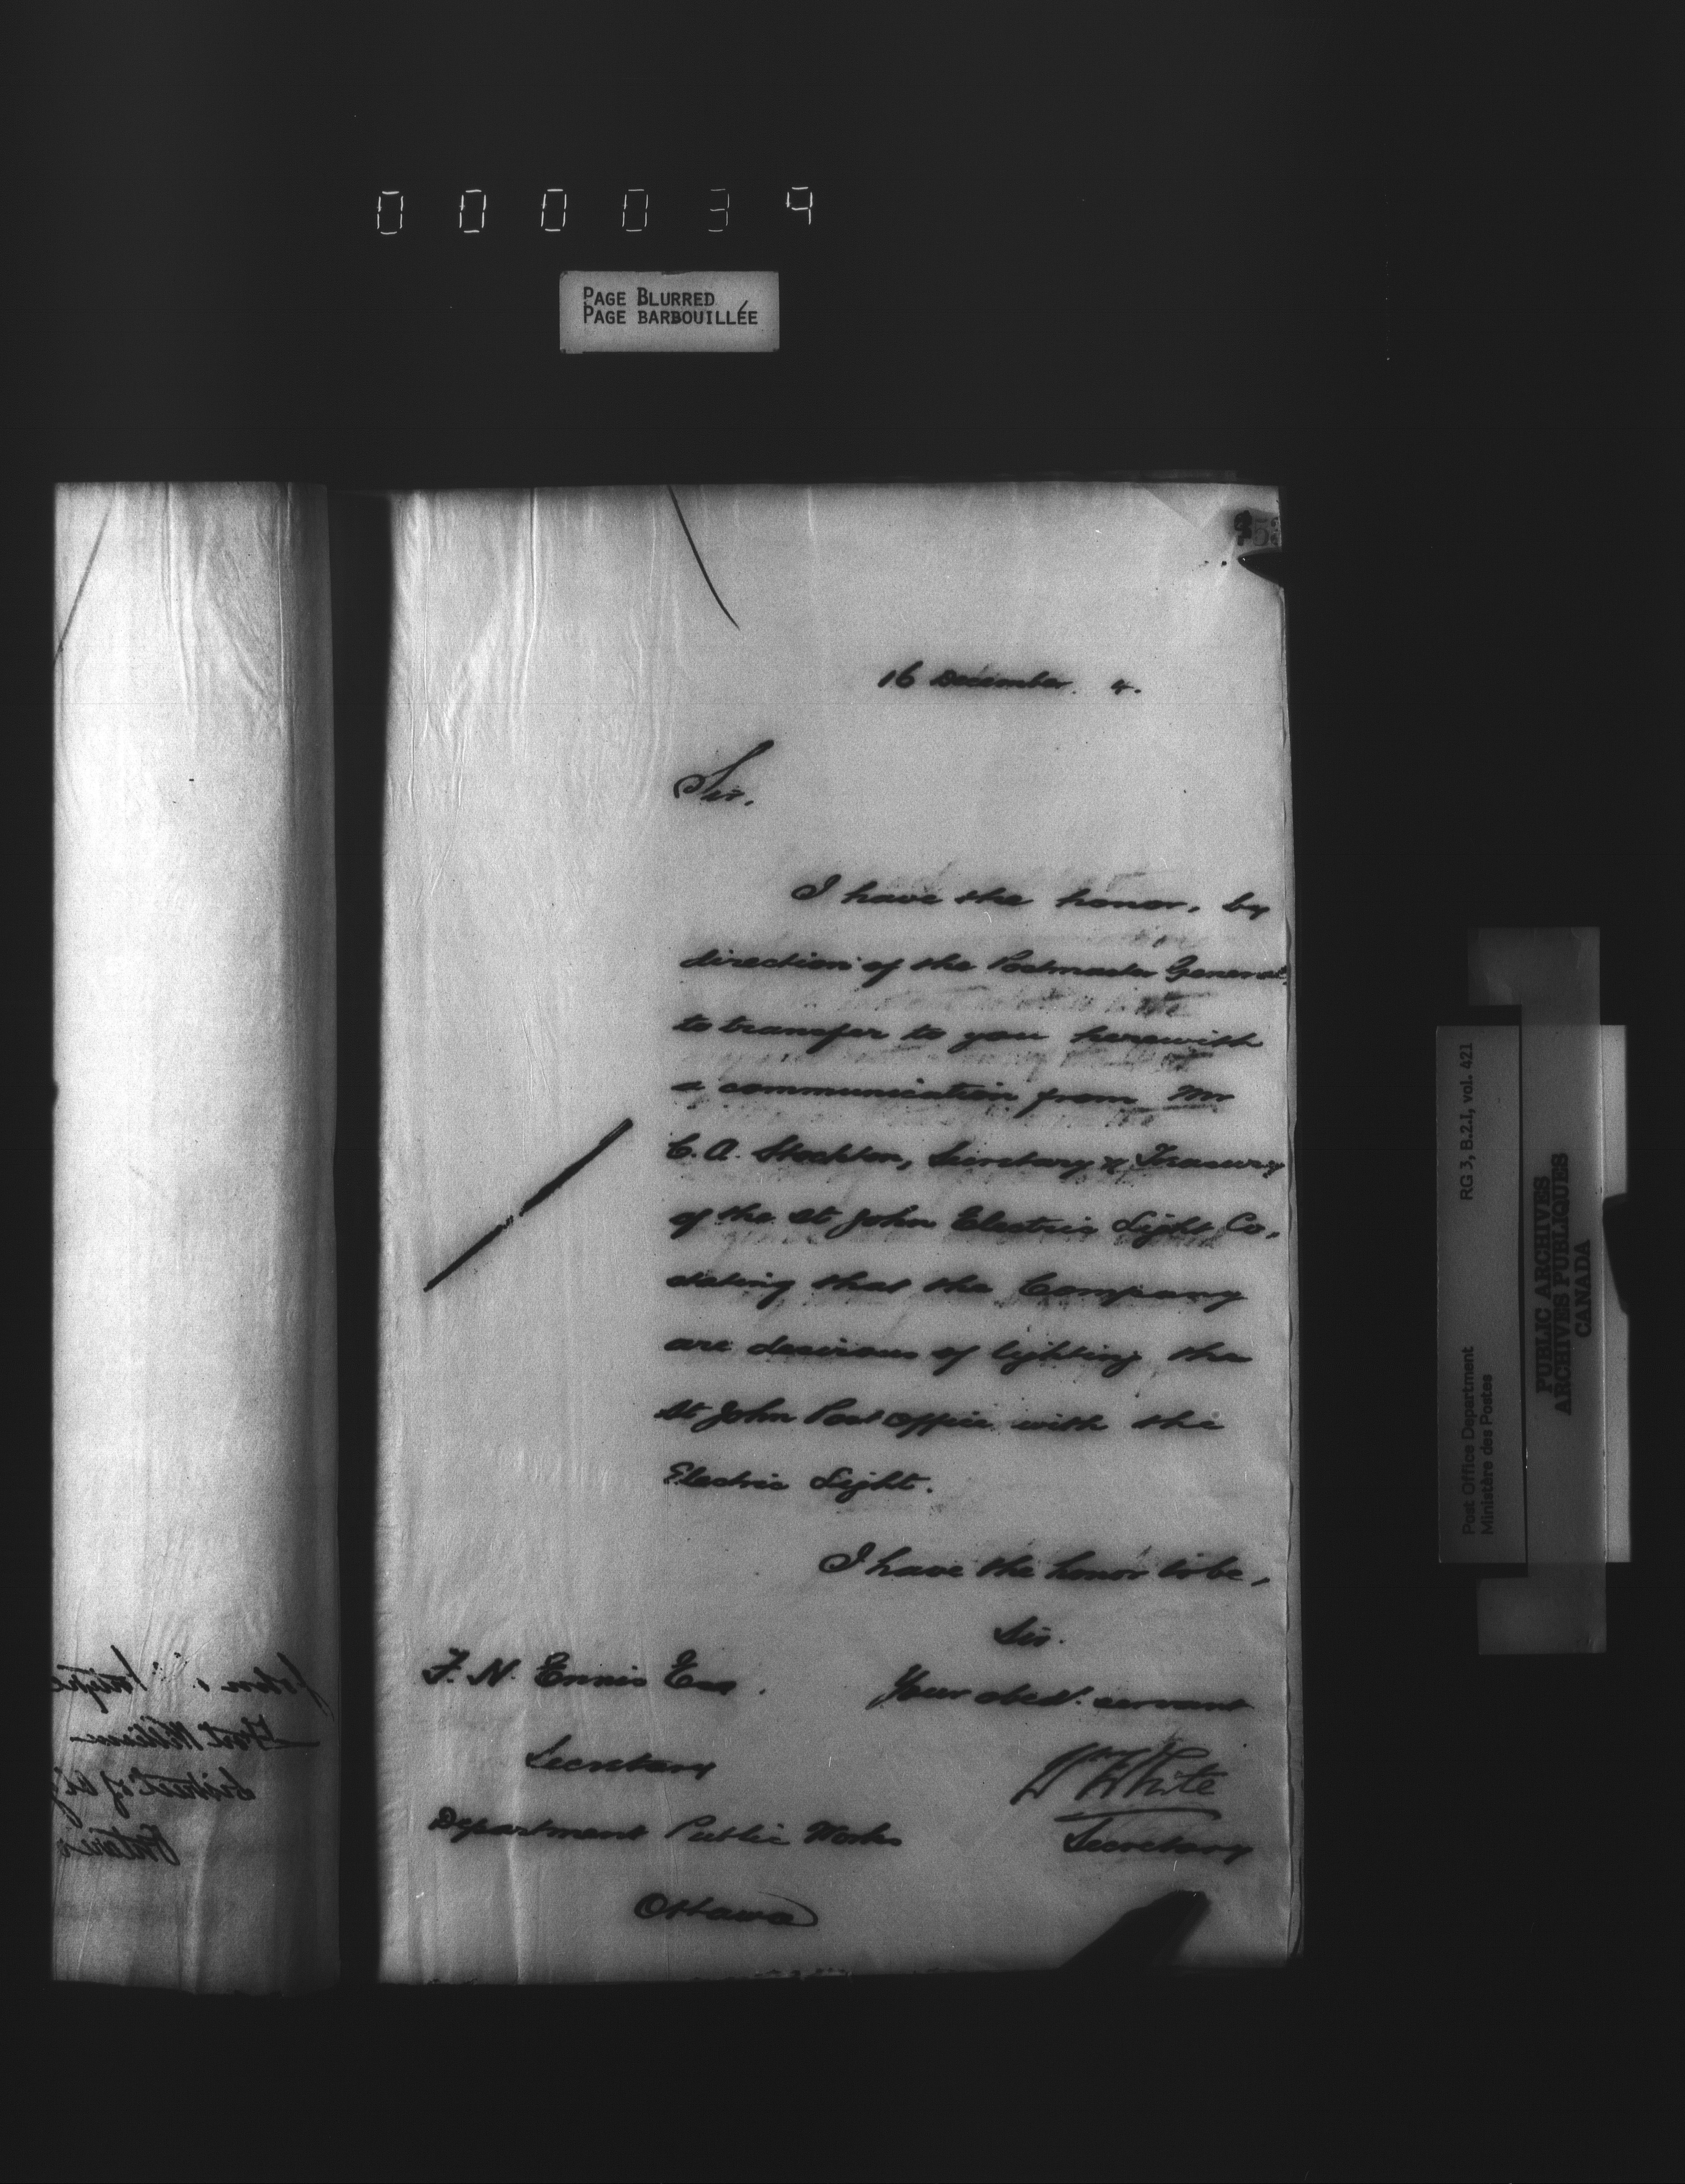 000039
PAGE BLURRED
PAGE BARBOUILLÉE
16 December. 4.
Sir,
I have the honor, by
direction of the Postmaster General,
to transfer to you herewith
a communication from Mr
C. A. Stockton, Secretary & Treasury
of the St John Electric Light Co,
stating that the Company
are desirous of lighting the
St John Post Office with the
Electric Light.
I have the honor to be,
Sir.
Your obedt. servant
Wm White
Secretary
F. N. Ennis Esq.
Secretary
Department Public Works
Ottawa
Fort William
District of
Ontario
Post Office Department RG 3, B.2.1, vol. 421
Ministère des Postes
PUBLIC ARCHIVES
ARCHIVES PUBLIQUES
CANADA